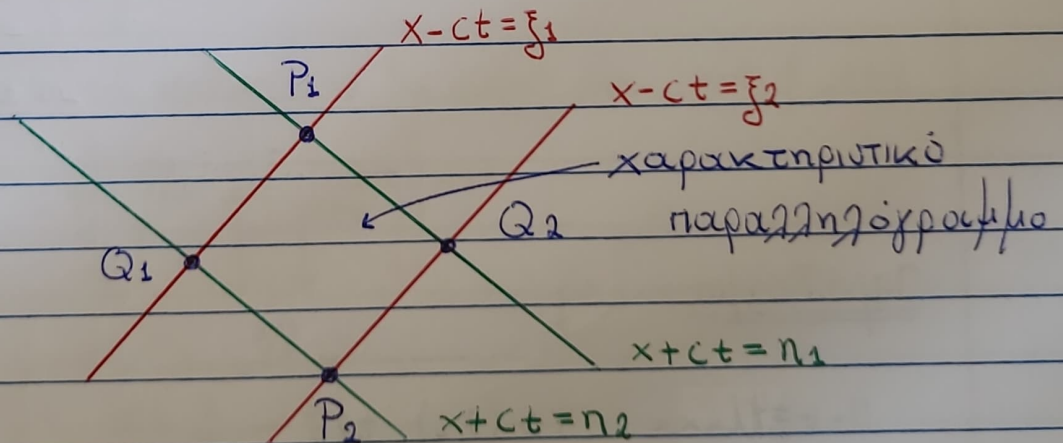 x-ct=ξ1
P1
x-ct=ξ2
χαρακτηριστικό
Q2
παραλληλόγραμμο
Q1
x+ct=η1
P2
x+ct=η2